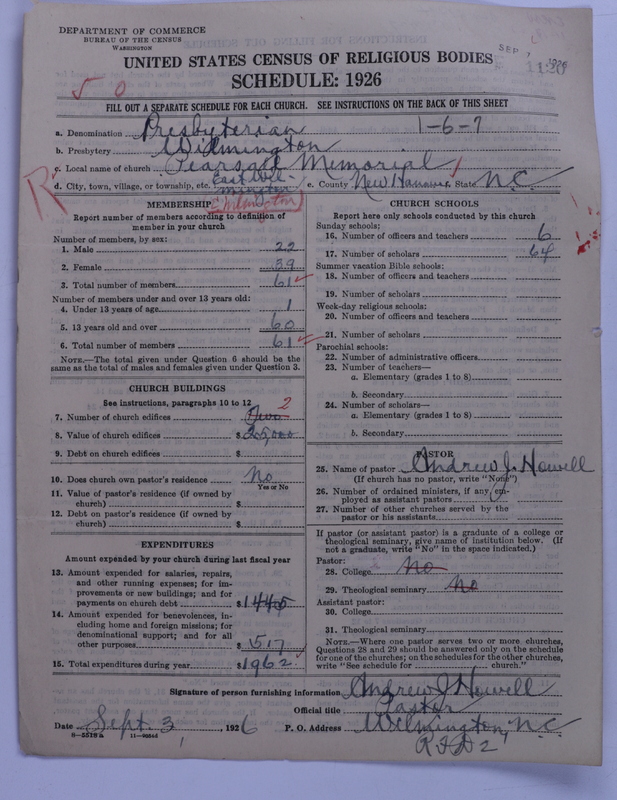 DEPARTMENT OF COMMERCE
BUREAU OF THE CENSUS
WASHINGTON
SEP 1926
UNITED STATES CENSUS OF RELIGIOUS BODIES
SCHEDULE: 1926
FILL OUT A SEPARATE SCHEDULE FOR EACH CHURCH. SEE INSTRUCTIONS ON THE BACK OF THIS SHEET
a. Denomination Presbyterian 1-6-7
b. Presbytery Wilmington
c. Local name of church Pearsall Memorial
d. City, town, village, or township, etc. East Wilmington e. County New Hanover State N.C.
MEMBERSHIP
Report number of members according to definition of
member in your church
Number of members, by sex:
1. Male 22
2. Female 39
3. Total number of members 61
Number of members under and over 13 years old:
4. Under 13 years of age 1
5. 13 years old and over 60
6. Total number of members 61
NOTE.—The total given under Question 6 should be the
same as the total of males and females given under Question 3.
CHURCH BUILDINGS
See instructions, paragraphs 10 to 12
7. Number of church edifices Two 2
8. Value of church edifices $ 25,000
9. Debt on church edifices $
10. Does church own pastor's residence No
Yes or No
11. Value of pastor's residence (if owned by
church) $
12. Debt on pastor's residence (if owned by
church) $
EXPENDITURES
Amount expended by your church during last fiscal year
13. Amount expended for salaries, repairs,
and other running expenses; for im-
provements or new buildings; and for
payments on church debt $ 1445
14. Amount expended for benevolences, in-
cluding home and foreign missions; for
denominational support; and for all
other purposes $ 517
15. Total expenditures during year $ 1962
CHURCH SCHOOLS
Report here only schools conducted by this church
Sunday schools:
16. Number of officers and teachers 6
17. Number of scholars 64
Summer vacation Bible schools:
18. Number of officers and teachers
19. Number of scholars
Week-day religious schools:
20. Number of officers and teachers
21. Number of scholars
Parochial schools:
22. Number of administrative officers
23. Number of teachers—
a. Elementary (grades 1 to 8)
b. Secondary
24. Number of scholars—
a. Elementary (grades 1 to 8)
b. Secondary
PASTOR
25. Name of pastor Andrew J. Howell
(If church has no pastor, write "None")
26. Number of ordained ministers, if any, em-
ployed as assistant pastors
27. Number of other churches served by the
pastor or his assistants
If pastor (or assistant pastor) is a graduate of a college or
theological seminary, give name of institution below. (If
not a graduate, write "No" in the space indicated.)
Pastor:
28. College No
29. Theological seminary No
Assistant pastor:
30. College
31. Theological seminary
NOTE.—Where one pastor serves two or more churches,
Questions 28 and 29 should be answered only on the schedule
for one of the churches; on the schedules for the other churches,
write "See schedule for church."
Signature of person furnishing information Andrew J. Howell
Official title Pastor
Date Sept. 3, 1926 P. O. Address Wilmington, N.C.
RFD 2
8-5518a